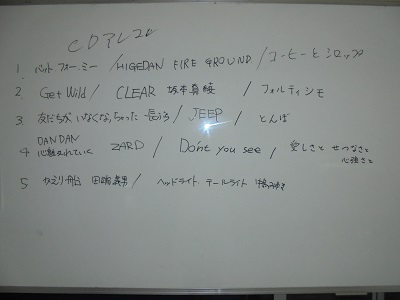 CDアレコレ
1 バット フォー ミー / HIGEDAN FIRE GROUND / コーヒーとシロップ
2 Get Wild / CLEAR 坂本真綾 / フォルティシモ
3 友だちがいなくなっちゃった 長渕 / JEEP / とんぼ
4 DAN DAN 心魅かれていく ZARD / Don't you see / 愛しさと せつなさと 心強さと
5 かえり船 田端義男 / ヘッドライト テールライト